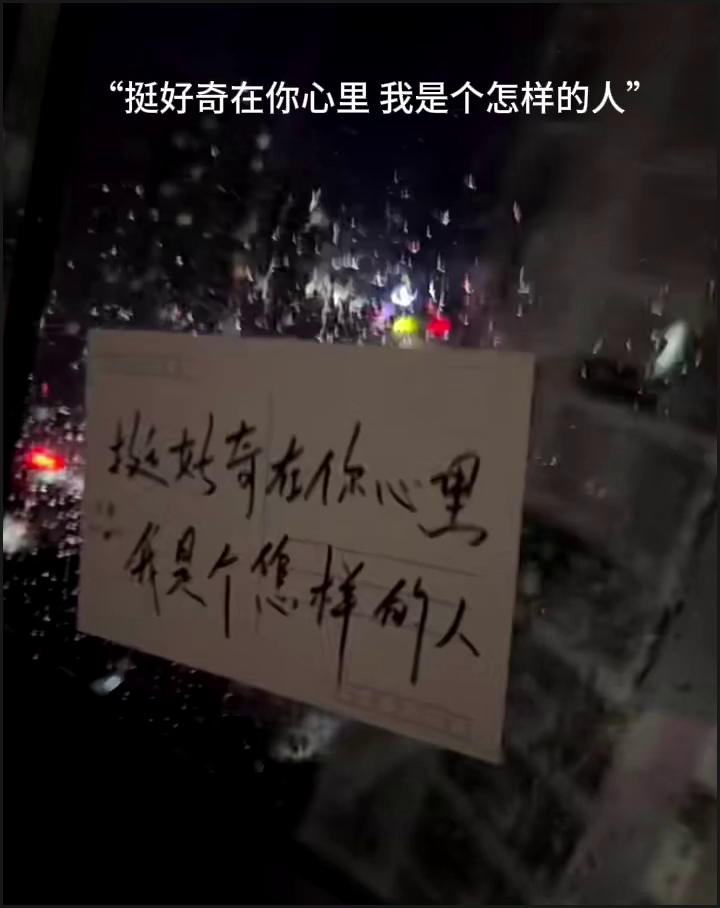 “挺好奇在你心里 我是个怎样的人”
挺好奇在你心里
我是个怎样的人